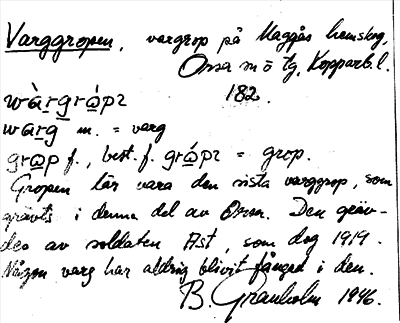 Varggropen, vargrop på Maggås hemskog,
Orsa s:n ö tg, Kopparb. l.
wàrgrópr 182.
warg m. = varg
grop f., best. f. grópr = grop.
Gropen lär vara den sista varggrop, som
grävts i denna del av Orsa. Den gräv-
des av soldaten Ast, som dog 1919.
Någon varg har aldrig blivit fångad i den.
B. Granholm 1946.